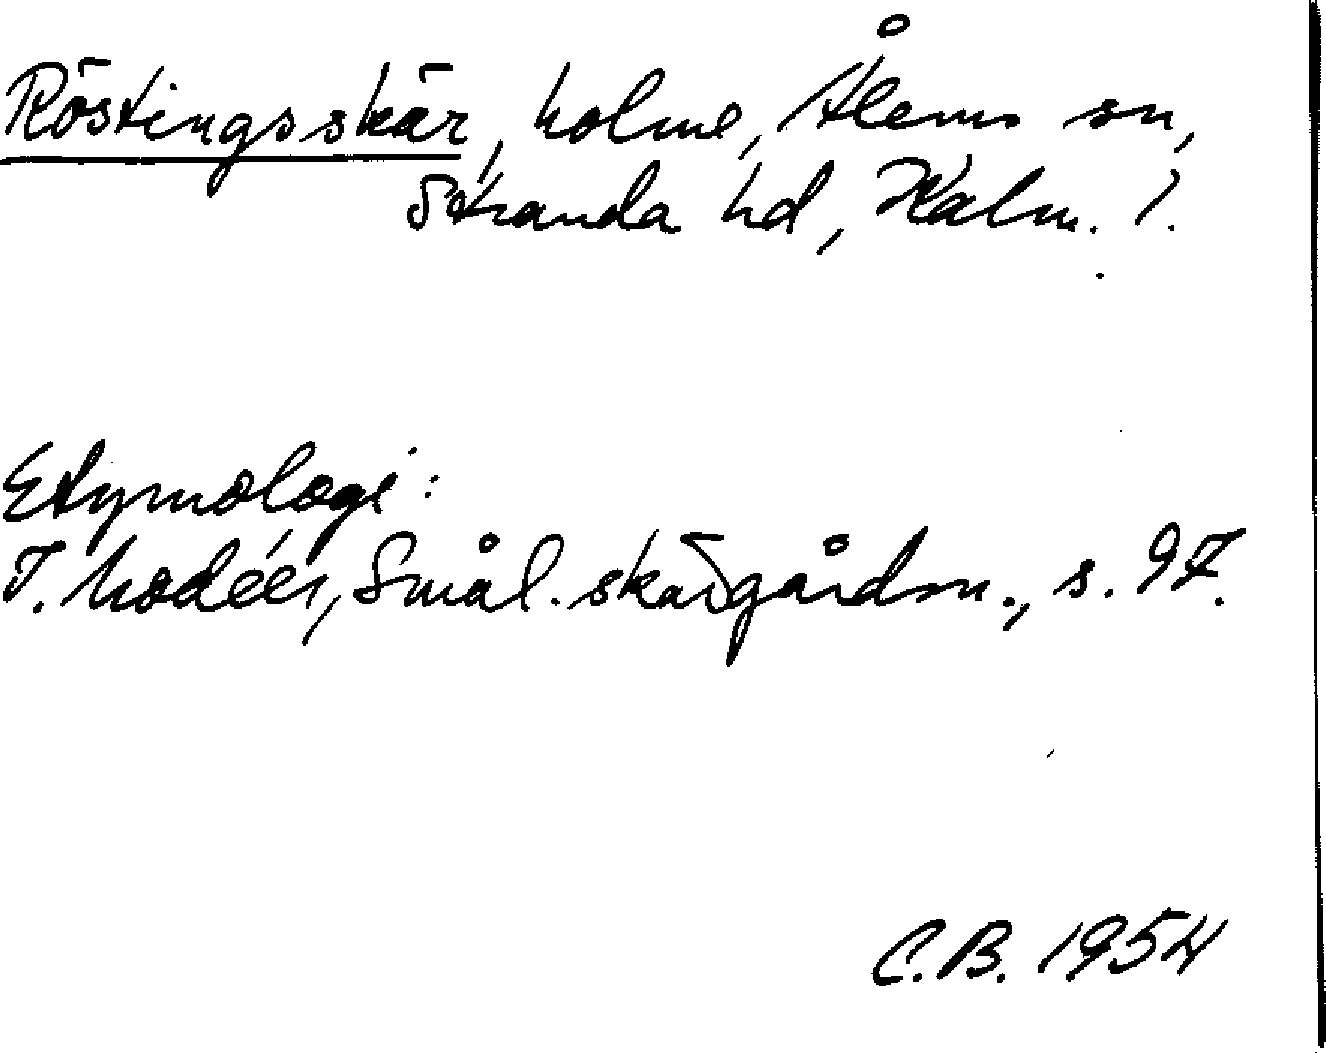 Röstingsskär, holme, Ålems sn,
Stranda hd, Kalm. l.
Etymologi:
I. Modéer, Smål. skärgårdsn., s. 97.
C.B. 1954